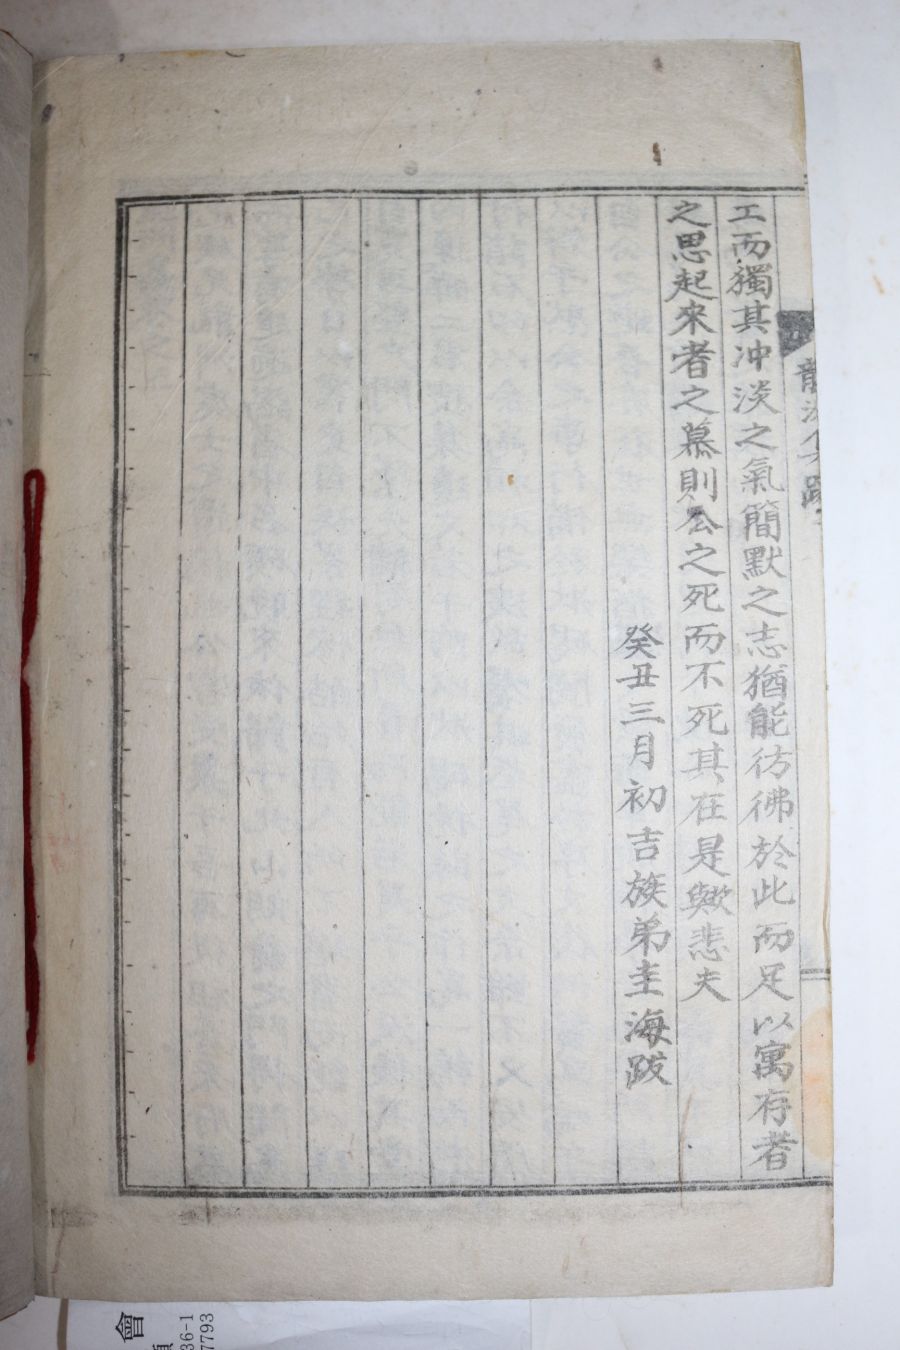 工而獨其冲淡之氣簡默之志猶能彷彿於此而足以寓存者
之思起來者之慕則公之死而不死其在是歟悲夫
癸丑三月初吉族弟圭海跋
跋
會
36-1
7793